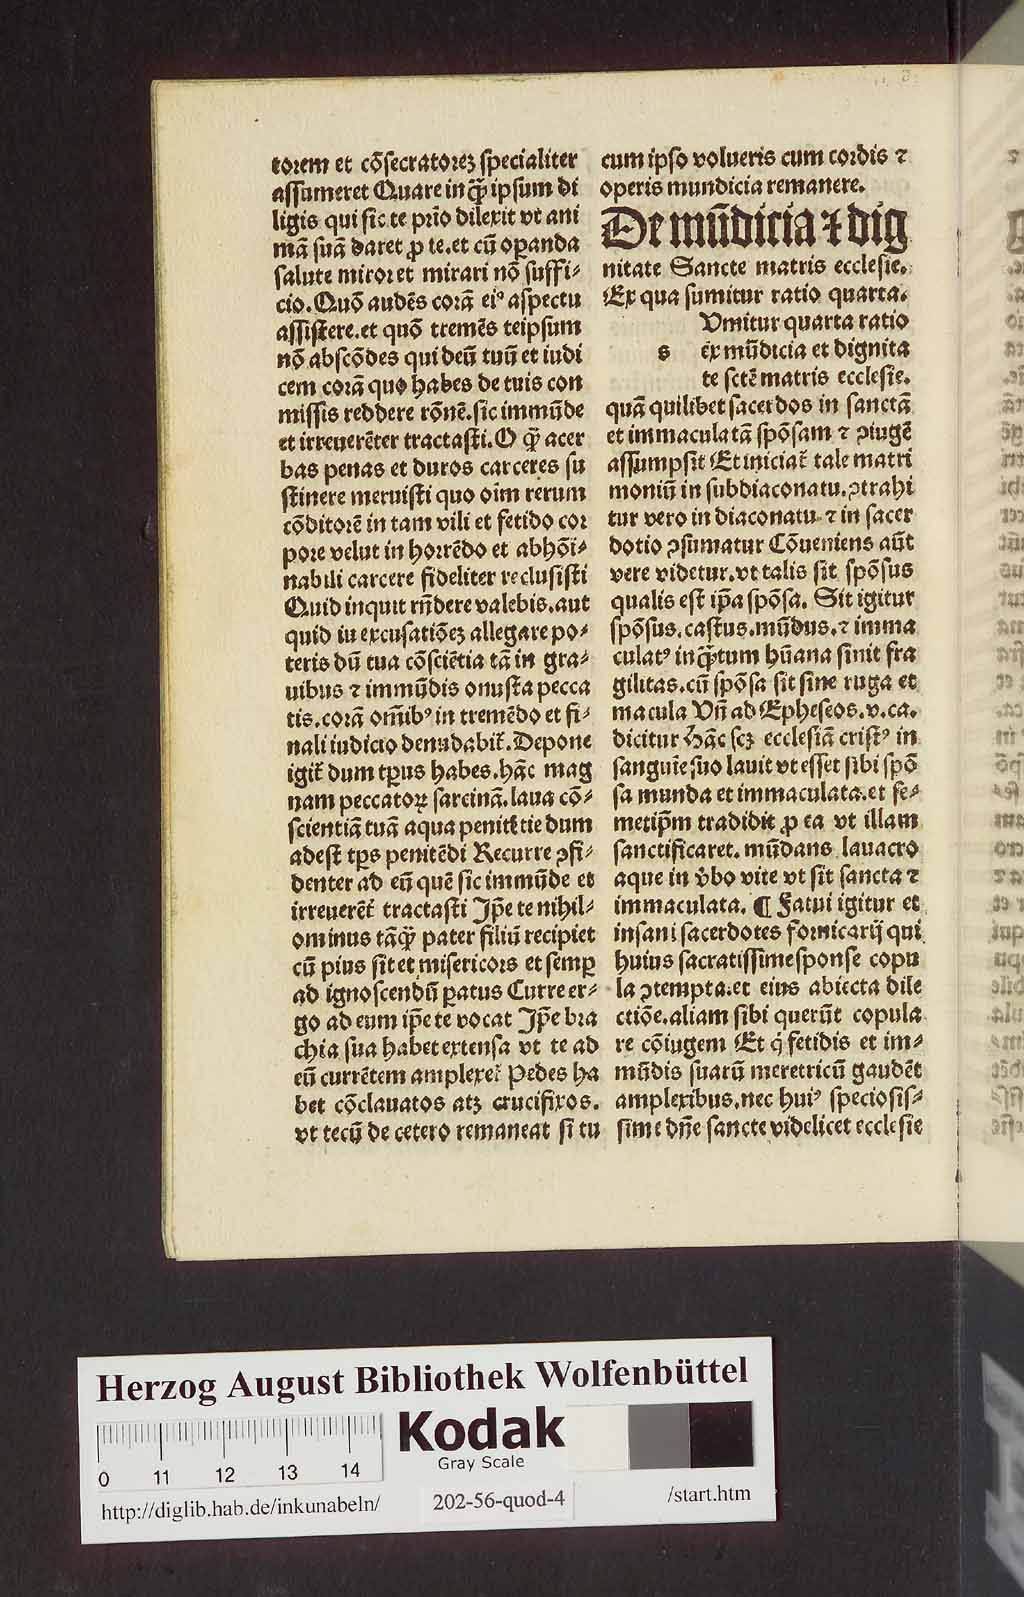 torem et cōsecratorez specialiter
assumeret Quare in qꝫ̄ ipsum di
ligis qui sic te prīo dilexit vt ani
mā suā daret ꝓ te.et cū oꝑanda
salute miror et mirari nō suffi⸗
cio.Quō audēs corā eiꝰ aspectu
assistere.et quō tremēs teipsum
nō abscōdes qui deū tuū et iudi
cem corā quo habes de tuis con
missis reddere rōnē.sic immūde
et irreuerēter tractasti.O qꝫ̄ acer
bas penas et duros carceres su
stinere meruisti quo oīm rerum
cōditorē in tam vili et fetido cor
pore velut in horrēdo et abhōi⸗
nabili carcere fideliter reclusisti
Quid inquit rn̄dere valebis.aut
quid in excusatiōez allegare po⸗
teris dū tua cōsciētia tā in gra⸗
uibus ⁊ immūdis onusta pecca
tis.corā om̄ibꝰ in tremēdo et fi⸗
nali iudicio denudabit̄.Depone
igit̄ dum tꝑus habes.hāc mag
nam peccatoꝝ sarcinā.laua cō⸗
scientiā tuā aqua penitētie dum
adest tꝑs penitēdi Recurre ꝯfi⸗
denter ad eū quē sic immūde et
irreuerēt̄ tractasti Ip̄e te nihil⸗
ominus tāqꝫ̄ pater filiū recipiet
cū pius sit et misericors et semꝑ
ad ignoscendū ꝑatus Curre er⸗
go ad eum ip̄e te vocat Ip̄e bra
chia sua habet extensa vt te ad
eū currētem amplexet̄ Pedes ha
bet cōclauatos atꝫ crucifixos.
vt tecū de cetero remaneat si tu
cum ipso volueris cum cordis ⁊
operis mundicia remanere.
De mūdicia ⁊ dig
nitate Sancte matris ecclesie.
Ex qua sumitur ratio quarta.
Vmitur quarta ratio
s ex mūdicia et dignita
te sctē matris ecclesie.
quā quilibet sacerdos in sanctā
et immaculatā spōsam ⁊ ꝯiugē
assumpsit Et iniciat̄ tale matri
moniū in subdiaconatu.ꝯtrahi
tur vero in diaconatu ⁊ in sacer
dotio ꝯsumatur Cōueniens aūt
vere videtur.vt talis sit spōsus
qualis est ip̄a spōsa. Sit igitur
spōsus.castus.mūdus.⁊ imma
culatꝰ inqꝫ̄tum hūana sinit fra
gilitas.cū spōsa sit sine ruga et
macula Vn̄ ad Epheseos.v.ca.
dicitur Hāc scꝫ ecclesiā cristꝰ in
sanguīe suo lauit vt esset sibi spō
sa munda et immaculata.et se⸗
metip̄m tradidit ꝓ ea vt illam
sanctificaret. mūdans lauacro
aque in v̄bo vite vt sit sancta ⁊
immaculata. ¶ Fatui igitur et
insani sacerdotes fornicarij qui
huius sacratissime sponse copu
la ꝯtempta.et eius abiecta dile
ctiōe.aliam sibi querūt copula
re cōiugem Et q̄ fetidis et im⸗
mūdis suarū meretricū gaudēt
amplexibus.nec huiꝰ speciosis⸗
sime dn̄e sancte videlicet ecclesie
Herzog August Bibliothek Wolfenbüttel
Kodak
Gray Scale
0 11 12 13 14
http://diglib.hab.de/inkunabeln/
202-56-quod-4
/start.htm